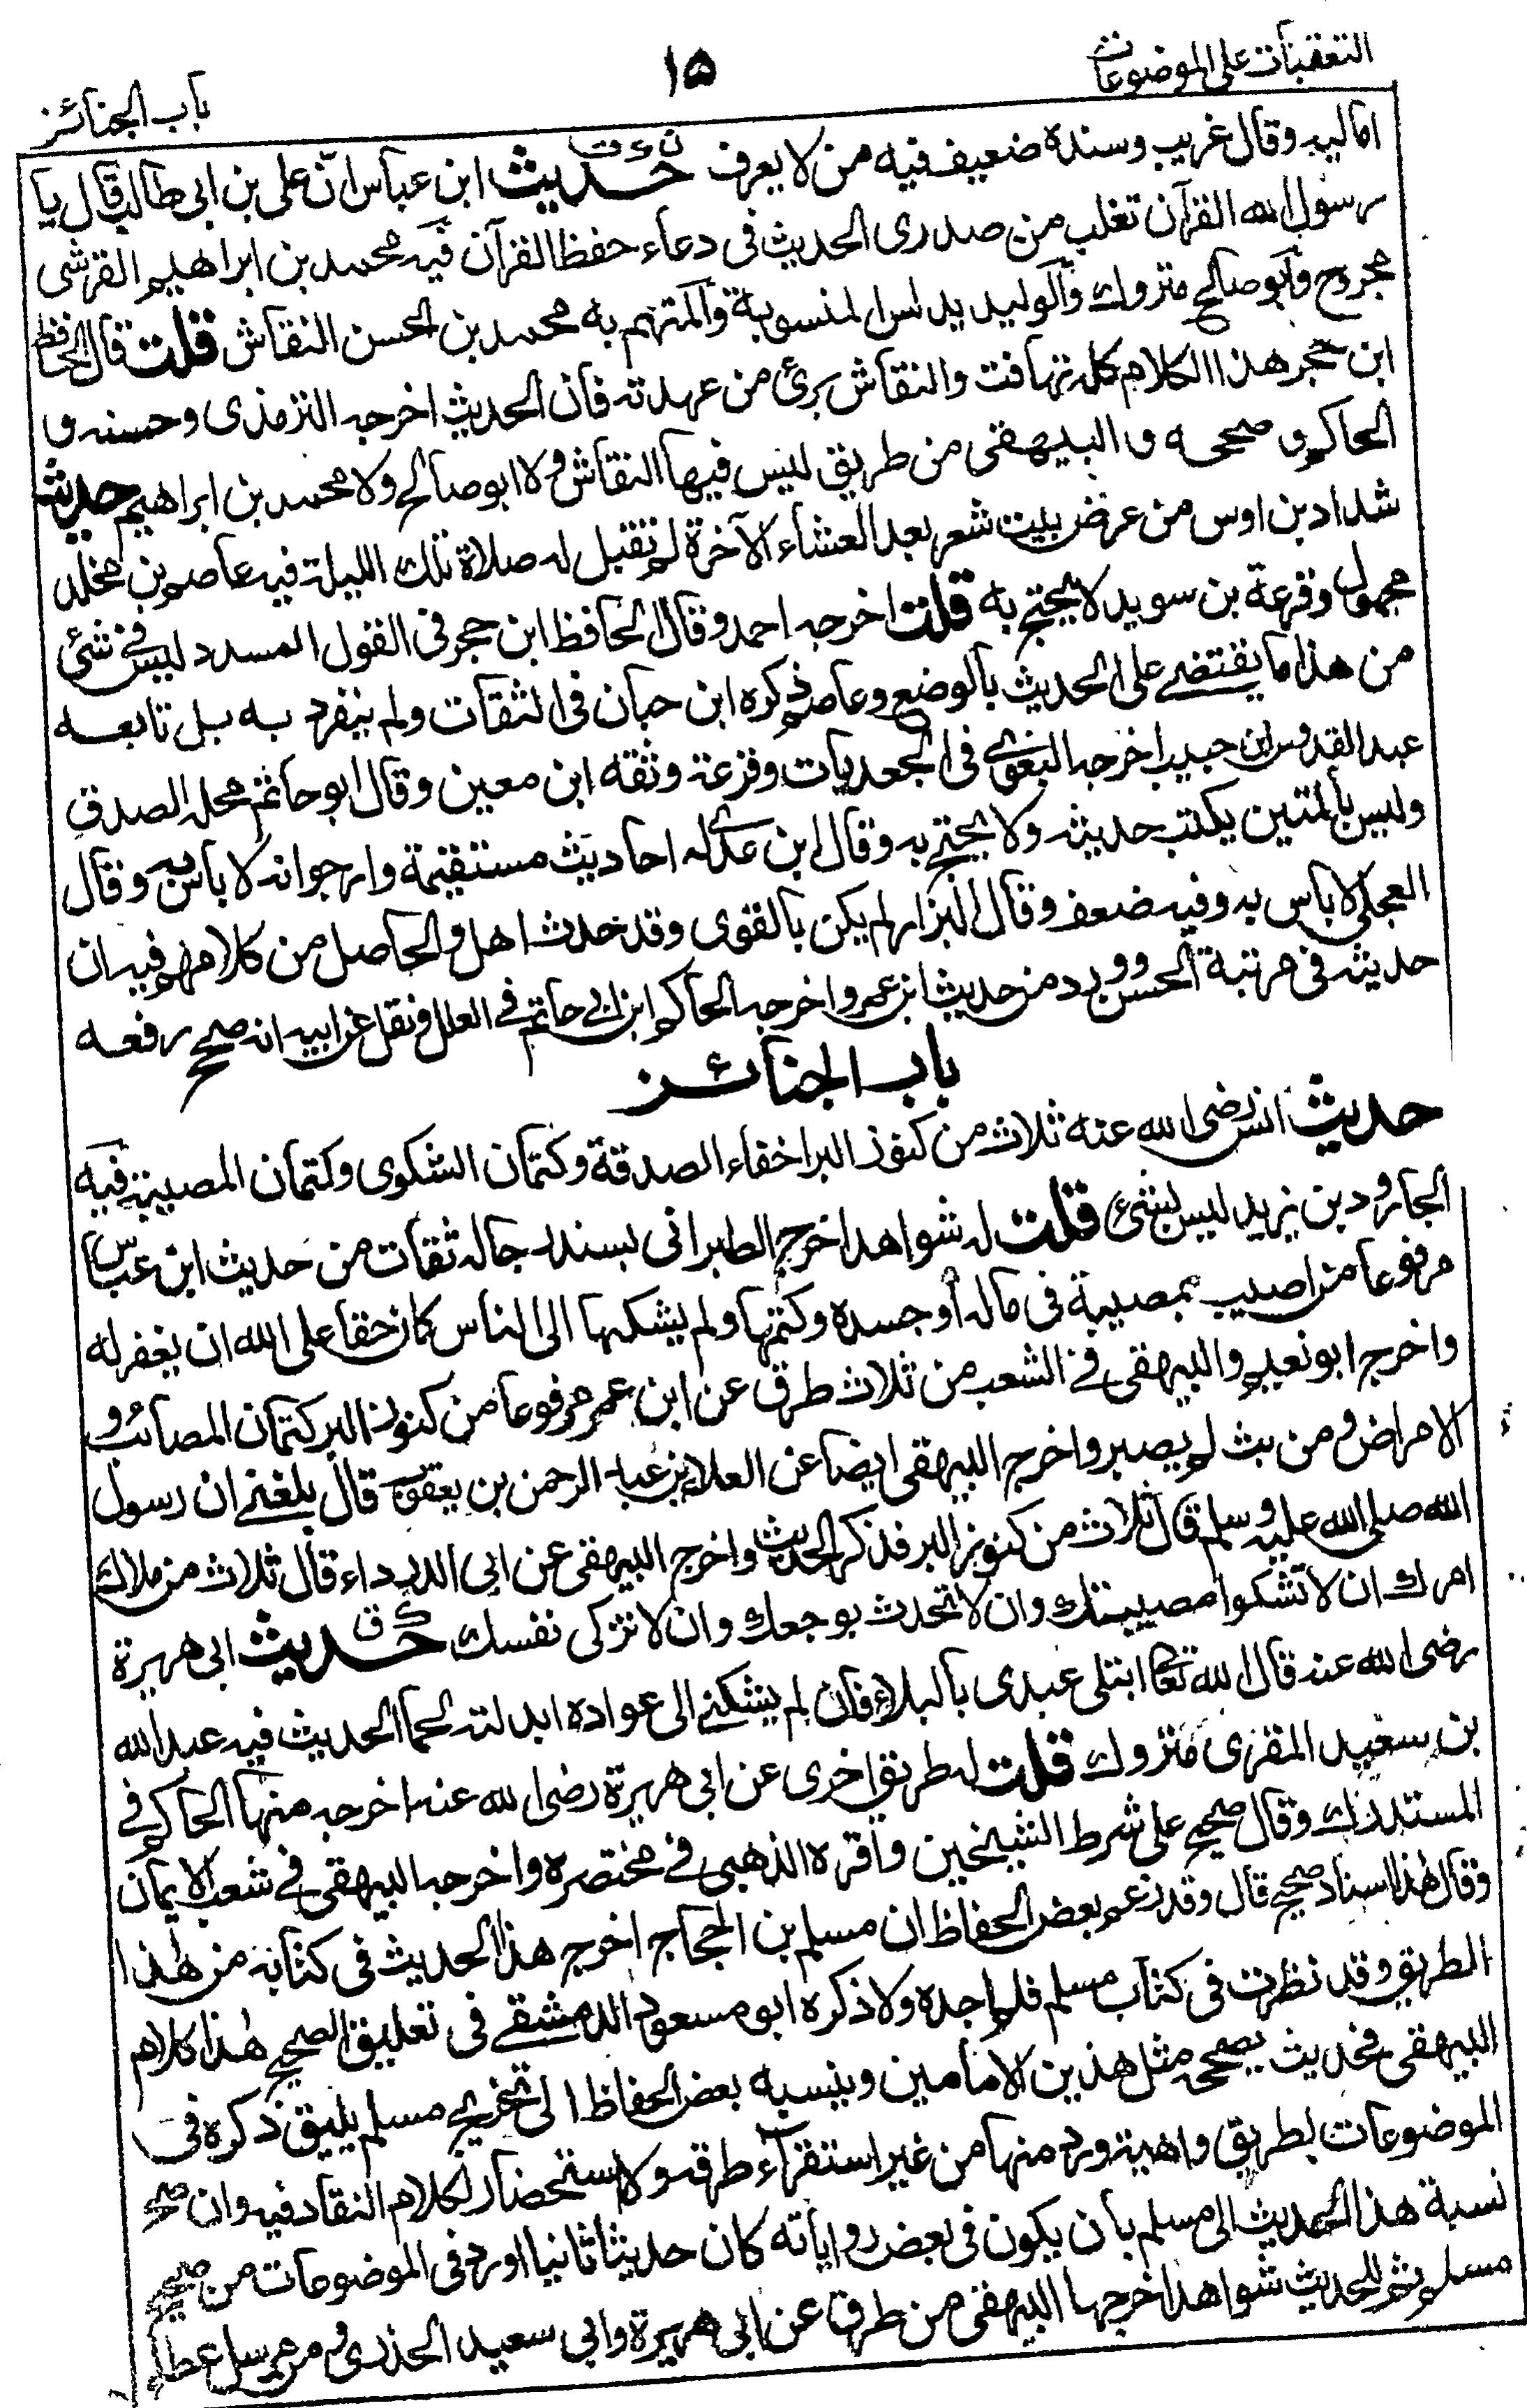 التعقبات على الموضوعات
١٥
باب الجنائز
اماليه وقال غريب وسنده ضعيف فيه من لا يعرف حديث ابن عباس ان على بن ابى طالب قال يا
رسول الله القرآن تغلب من صدرى الحديث فى دعاء حفظ القرآن فيه محمد بن ابراهيم القرشى
مجروح وابو صالح متروك والوليد يدلس المنسوبة والمتهم به محمد بن الحسن النقاش قلت قال الحافظ
ابن حجر هذا الكلام كله تهافت والنقاش برئ من عهدته فان الحديث اخرجه الترمذى وحسنه و
الحاكم وصححه و البيهقى من طريق ليس فيها النقاش ولا ابو صالح ولا محمد بن ابراهيم حديث
شداد بن اوس من عرض بيت شعر بعد العشاء الآخرة لم تقبل له صلاة تلك الليلة فيه عاصم بن مخلد
مجهول وقزعة بن سويد لا يحتج به قلت اخرجه احمد وقال الحافظ ابن حجر فى القول المسدد ليس فى شئ
من هذا ما يقتضى على الحديث بالوضع وعاصم ذكره ابن حبان فى الثقات ولم ينفرد به بل تابعه
عبد القدوس ابن حبيب اخرجه البغوى فى الجعديات وقزعة وثقه ابن معين وقال ابو حاتم محله الصدق
وليس بالمتين يكتب حديثه ولا يحتج به وقال ابن عدى له احاديث مستقيمة وارجو انه لا باس به وقال
العجلى لا باس به وفيه ضعف وقال البزار لم يكن بالقوى وقد حدث اهل والحاصل من كلامهم فيه ان
حديثه فى مرتبة الحسن وورد من حديث ابن عمرو اخرجه الحاكم ابن ابى حاتم فى العلل ونقل عن ابيه انه صحح رفعه
باب الجنائز
حديث انس رضى الله عنه ثلاث من كنوز البر اخفاء الصدقة وكتمان الشكوى وكتمان المصيبة فيه
الجارود بن يزيد ليس بشئ قلت له شواهد اخرج الطبرانى بسند رجاله ثقات من حديث ابن عباس
مرفوعا من اصيب بمصيبة فى ماله أو جسده وكتمها ولم يشكها الى الناس كان حقا على الله ان يغفر له
واخرج ابو نعيم والبيهقى فى الشعب من ثلاث طرق عن ابن عمر مرفوعا من كنوز البر كتمان المصائب و
الامراض ومن بث لم يصبر واخرج البيهقى ايضا عن العلاء بن عبد الرحمن بن يعقوب قال بلغنى ان رسول
الله صلى الله عليه وسلم قال ثلاث من كنوز البر فذكر الحديث واخرج البيهقى عن ابى الدرداء قال ثلاث من ملاك
امرك ان لا تشكو امصيبتك وان لا تحدث بوجعك وان لا تزكى نفسك حديث ابى هريرة
رضى الله عنه قال الله تعالى ابتلى عبدى بالبلاء فان لم يشكنى الى عواده ابدلته لحما الحديث فيه عبد الله
بن سعيد المقبرى متروك قلت له طريق اخرى عن ابى هريرة رضى الله عنه اخرجه منها الحاكم فى
المستدرك وقال صحيح على شرط الشيخين واقره الذهبى فى مختصره واخرجه البيهقى فى شعب الايمان
وقال هذا اسناد صحيح قال وقد زعم بعض الحفاظ ان مسلم بن الحجاج اخرج هذا الحديث فى كتابه من هذا
الطريق وقد نظرت فى كتاب مسلم فلم اجده ولا ذكره ابو مسعود الدمشقى فى تعليق الصحيح هذا كلام
البيهقى فحديث يصححه مثل هذين الامامين وينسبه بعض الحفاظ الى تخريج مسلم يليق ذكره فى
الموضوعات لطريق واهية ورد منها من غير استقرآء طرقه ولا استحضار لكلام النقاد فيه وان صح
نسبة هذا الحديث الى مسلم بان يكون فى بعض رواياته كان حديثا ثانيا اورد فى الموضوعات من صحيح
مسلم ثم للحديث شواهد اخرجها البيهقى من طرق عن ابى هريرة وابى سعيد الخدرى ومن مرسل عطاء